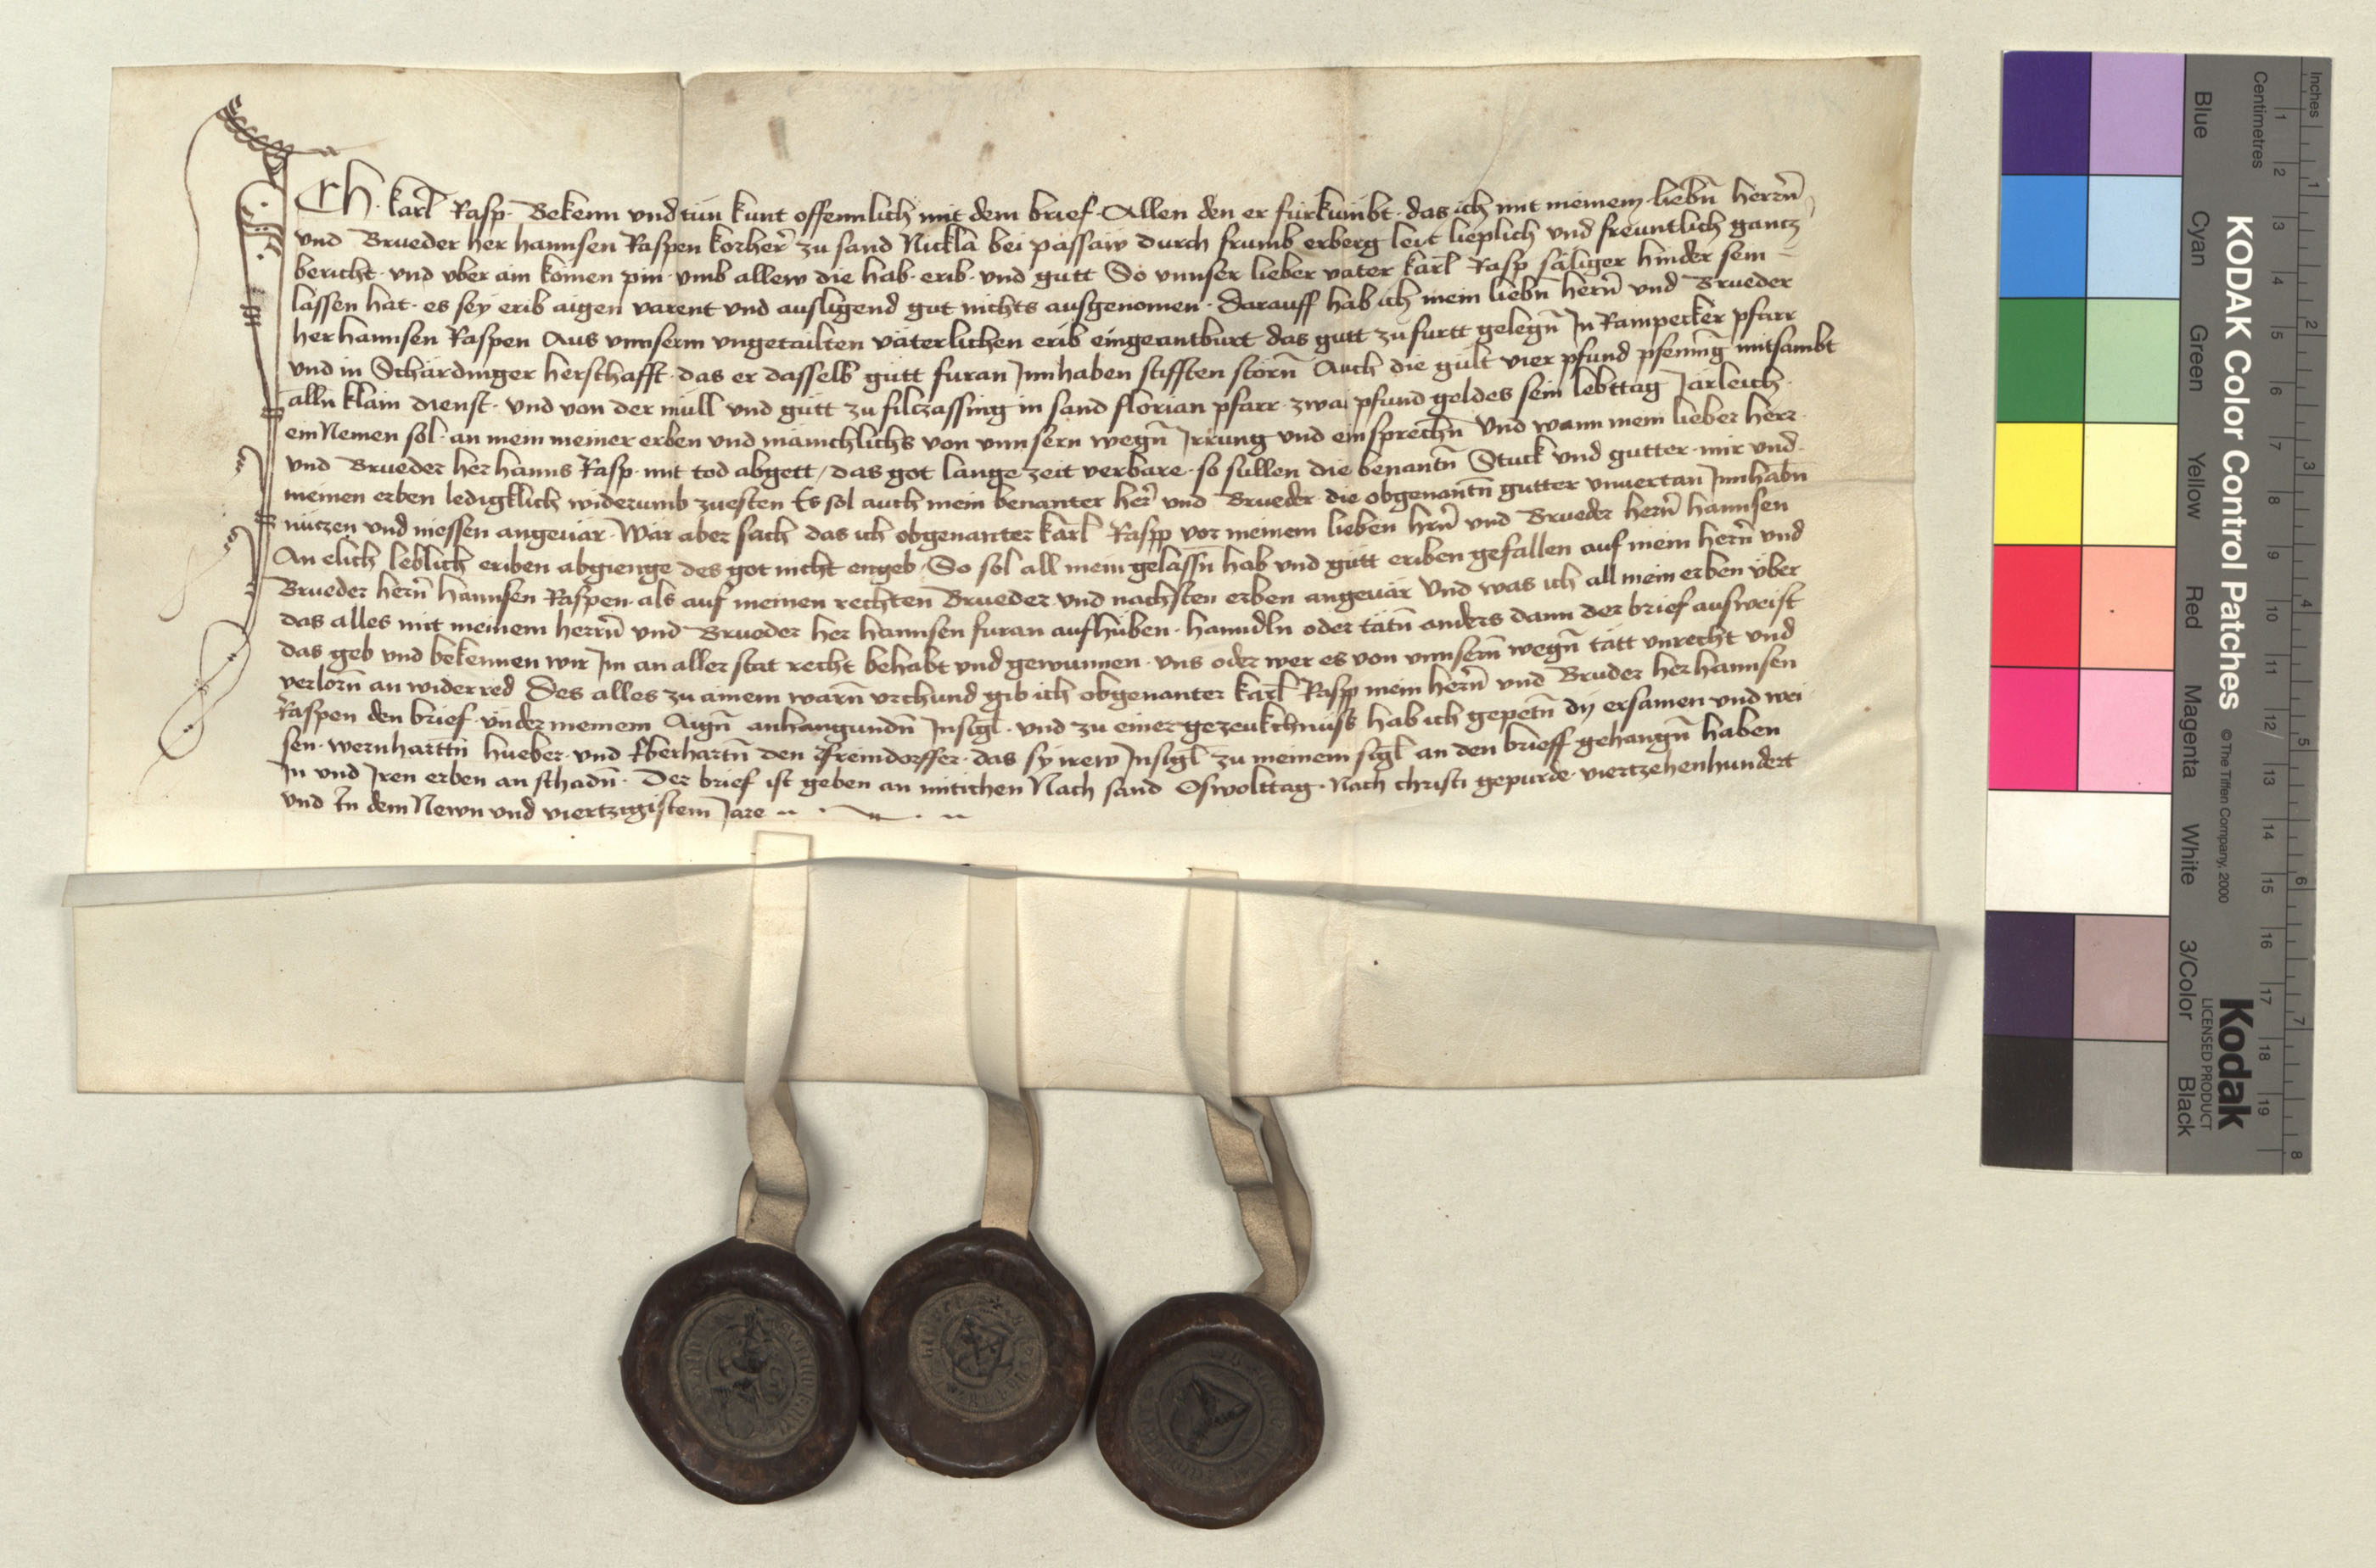 Ich karl Rasp Bekenn vnd tun kunt offennlich mit dem brief Allen den er furkumbt das ich mit meinem liebn̄ herrn̄
vnd Brueder her hannsen Raspen korher̄ zu sand Nickla bei passaw durch frumb erberg leit lieplich vnd freuntlich gantz
bericht vnd vber ain komen pin vmb allew die hab erib vnd gutt So vnnser lieber vater karl Rasp säliger hinder sein
lassen hat es sey erib aigen varent vnd ausligend gut nichts ausgenomen darauff hab ich mein liebn̄ hern̄ vnd Brueder
her hannsen Raspen Aus vnnserm vngetailten väterlichen erib eingeantburt das gutt zu furtt gelegn̄ Jn Rampecker pfarr
vnd in Schärdinger herschafft das er dasselb gutt furan Jnnhaben stifften störn̄ Auch die gult vier pfund pfening mitsambt
alln klain dienst vnd von der mull vnd gutt zu filczassing in sand florian pfarr zwai pfund geldes sein lebttag Järleich
ein Nemen sol an mein meiner erben vnd mänichlichs von vnnsern wegn̄ Jrrung vnd einsprechn̄ Vnd wann mein lieber herr
vnd Brueder her hanns Rasp mit tod abgett das got lange zeit verbare so sullen die benantn̄ Stuck vnd gutter mir vnd
meinen erben ledigklich widerumb zuesten Es sol auch mein benanter her̄ vnd Brueder die obgenantn̄ gutter vnuertan Jnnhabn
nuczen vnd niessen angeuär Wär aber sach das ich obgenanter karl Rasp vor meinem lieben hrn̄ vnd Brueder hern̄ hannsen
An elich leblich eriben abgienge des got nicht engeb So sol all mein gelassn̄ hab vnd gutt eriben gefallen auf mein hern̄ vnd
Brueder hern̄ hannsen Raspen als auf meinen rechten Brueder vnd nachsten erben angeuär Vnd was ich all mein erben vber
das alles mit meinem herrn̄ vnd Brueder her hannsen furan aufhüben hanndln oder tätn̄ anders dann der brief ausweist
das geb vnd bekennen wir Jm an aller stat recht behabt vnd gewunnen vns oder wer es von vnnsern̄ wegn̄ tätt vnrecht vnd
verlorn̄ an widerred Des alles zu ainem warn̄ vrchund gib ich obgenanter karl Rasp mein hern̄ vnd Bruder her hannsen
Raspen den brief vnder meinem Aign̄ anhangundn̄ Jnsigl vnd zu einer gezeukchnuss hab ich gepetn̄ dy ersamen vnd wei
sen wernharttn̄ hueber vnd Eberhartn̄ den freindorffer das sy irew Jnsigl zu meinem sigl an den brieff gehangn̄ haben
Jn vnd Jren erben an schadn̄ Der brief ist geben an mitichen Nach sand Oswolttag Nach christi gepurde viertzehenhundert
vnd Jn dem Newn vnd viertzigistem Jare
KODAK Color Control Patches © The Tiffen Company, 2000 Kodak LICENSED PRODUCT
Inches 1 2 3 4 5 6 7 8
Centimetres 1 2 3 4 5 6 7 8 9 10 11 12 13 14 15 16 17 18 19
Blue Cyan Green Yellow Red Magenta White 3/Color Black